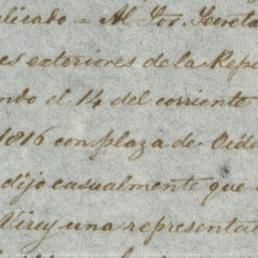 plicado = Al Sor. Secreta
es exteriores de la Repu
ndo el 14 del corriente
1816 con plaza de Oido
dijo casualmente que
Virey una representa